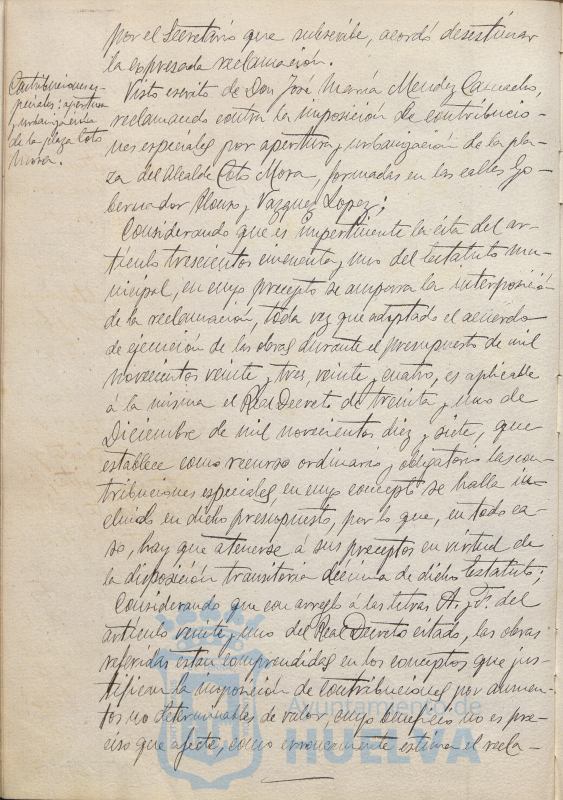 por el Secretario que subscribe, acordó desestimar
la expresada reclamación.
Contribuciones es-
peciales: apertura
y urbanización
de la plaza Coto
Mora.
Visto escrito de Don José María Mendez Camacho,
reclamando contra la imposición de contribucio-
nes especiales por apertura y urbanización de la pla-
za del Alcalde Coto Mora, formadas en las calles Go-
bernador Alonso y Vazquez Lopez;
Considerando que es impertinente la cita del ar-
tículo trescientos cincuenta y uno del Estatuto mu-
nicipal, en cuyo precepto se amparra la interposición
de la reclamación, toda vez que adoptado el acuerdo
de ejecución de las obras durante el presupuesto de mil
novecientos veinte y tres, veinte y cuatro, es aplicable
á la misma el Real Decreto de treinta y uno de
Diciembre de mil novecientos diez y siete, que
establece como recurso ordinario y obligatorio las con-
tribuciones especiales en cuyo concepto se halla in-
cluido en dicho presupuesto, por lo que, en todo ca-
so, hay que atenerse á sus preceptos en virtud de
la disposición transitoria décima de dicho Estatuto;
Considerando, que con arreglo á las letras A. y F. del
artículo veinte y uno del Real Decreto citado, las obras
referidas están comprendidas en los conceptos que jus-
tifican la imposición de contribuciones por aumen-
tos no determinables de valor, cuyo beneficio no es pre-
ciso que afecte, como erroneamente estima el recla-
Ayuntamiento de
HUELVA